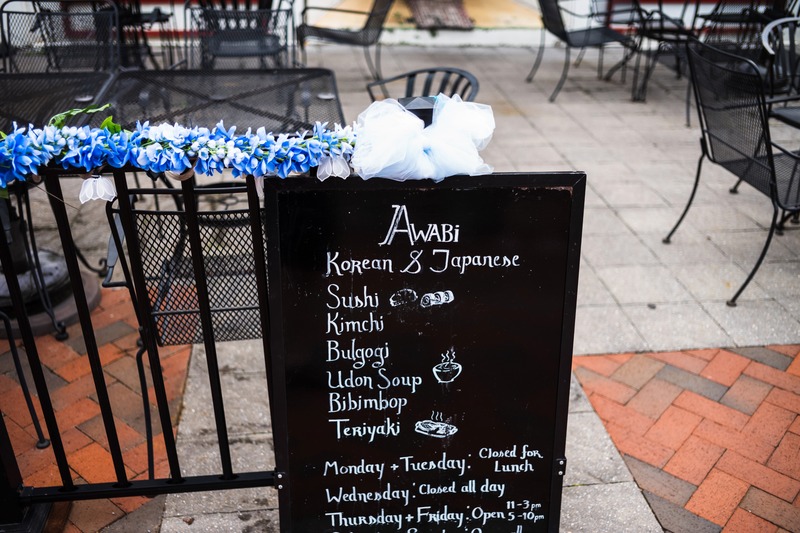 Awabi
Korean & Japanese
Sushi
Kimchi
Bulgogi
Udon Soup
Bibimbop
Teriyaki
Monday + Tuesday: Closed for Lunch
Wednesday: Closed all day
Thursday + Friday: Open 11-3pm 5-10pm